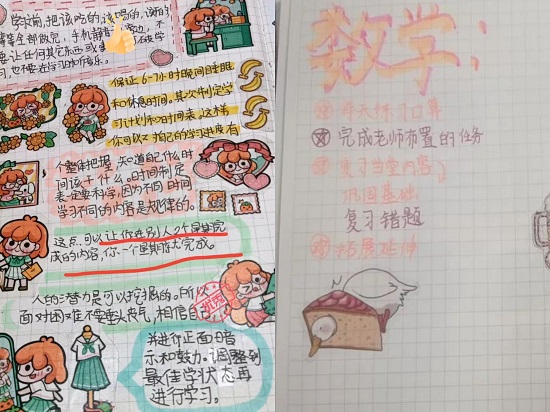 学校前,把该吃的,该喝的,该
等全部做完,手机静音
要让任何其它东西或
习,也不在学习中听音乐。
保证6-7小时晚间睡眠
和休息时间。其次制定学
习计划和时间表,这样
你可以对自己的学习进度有
个整体把握,知道自己什么时
间该干什么。时间制定
表一定要科学,因为不同时间
学习不同的内容是规律的。
这点,可以让你在别人2个星期完
成的内容,你一个星期就完成。
人的潜力是可以挖掘的。所以
面对困难不要垂头丧气,相信自己
并进行正面暗
示和鼓力。调整到
最佳学状态再
进行学习。
数学:
每天练习口算
完成老师布置的任务
复习当堂内容
巩固基础
复习错题
拓展延伸